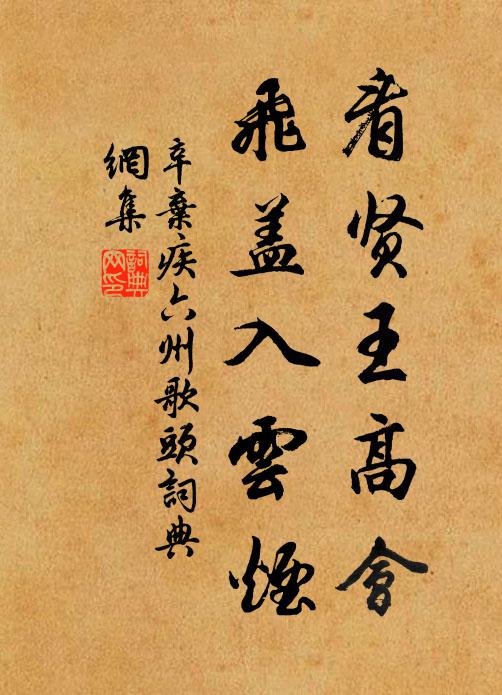 看贤王高會
飛盖入雲煙
辛棄疾六州歌頭詞典
網集
詞典網印